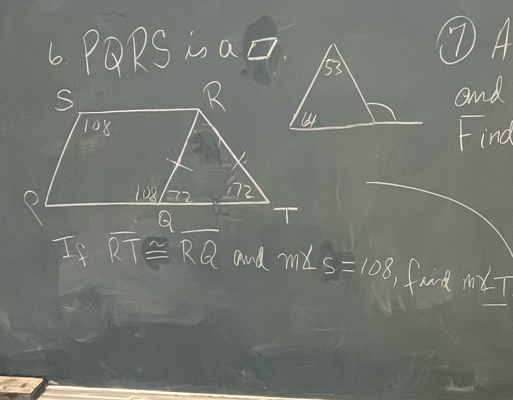 6. PQRS is a ▱.
S
R
108
P
108
72
72
Q
T
If RT ≅ RQ and m∡S = 108, find m∡T
53
64
⑦ A
and
Find